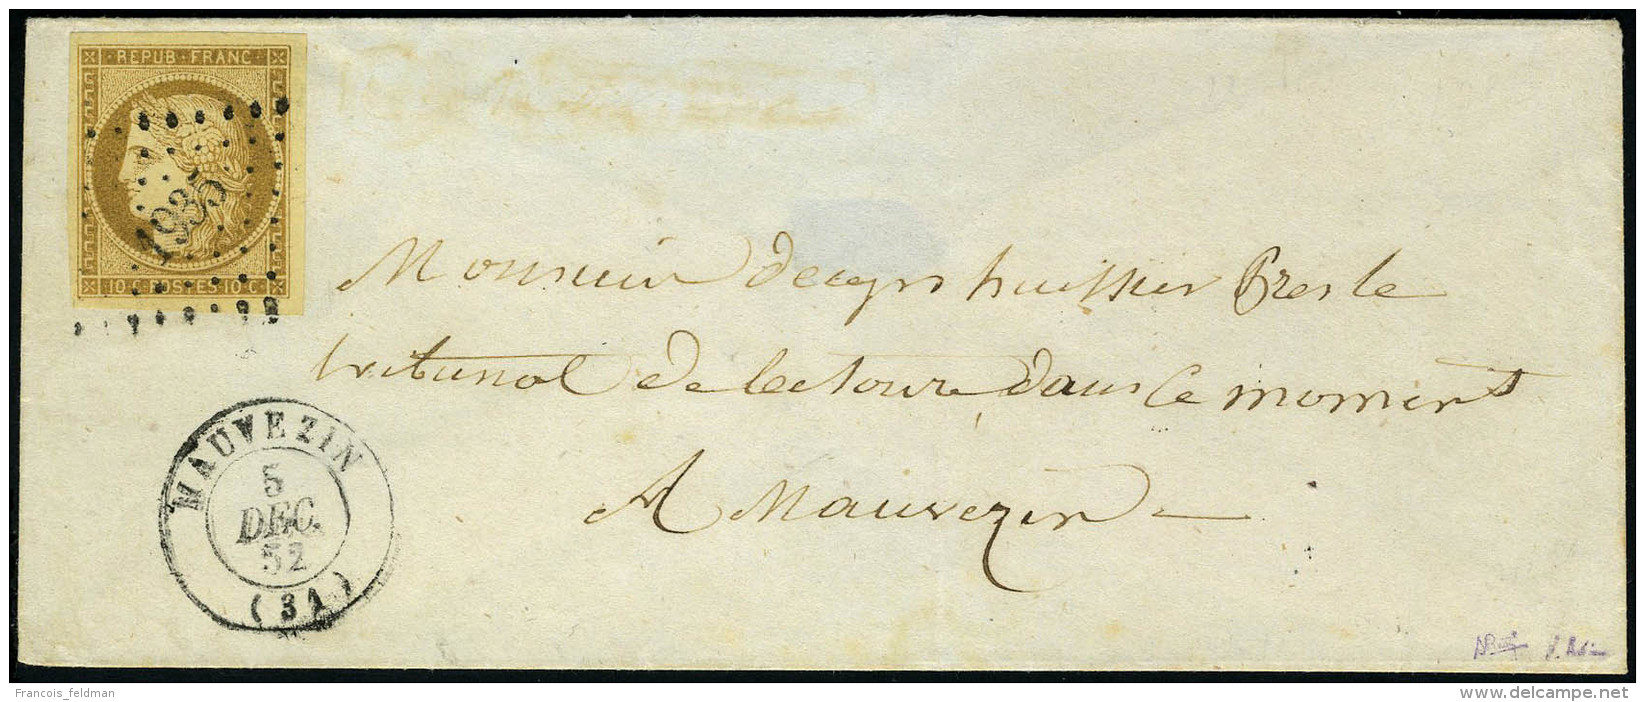 REPUB·FRANC
1935
10 C·POSTES·10 C
Monsieur decays huissier Pres le
tribunal de lectoure dans ce moment
A Mauvezin —
MAUVEZIN
5
DEC.
52
(31)
Francois_feldman
www.delcampe.net